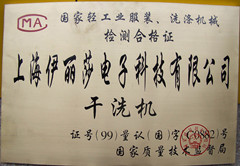 CMA
国家轻工业服装、洗涤机械
检测合格证
上海伊丽莎电子科技有限公司
干洗机
证号(99)量认(国)字(C0882)号
国家质量技术监督局